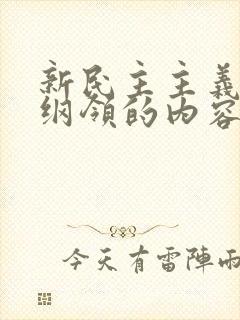 新民主主義
纲领的内容
今天有雷陣雨